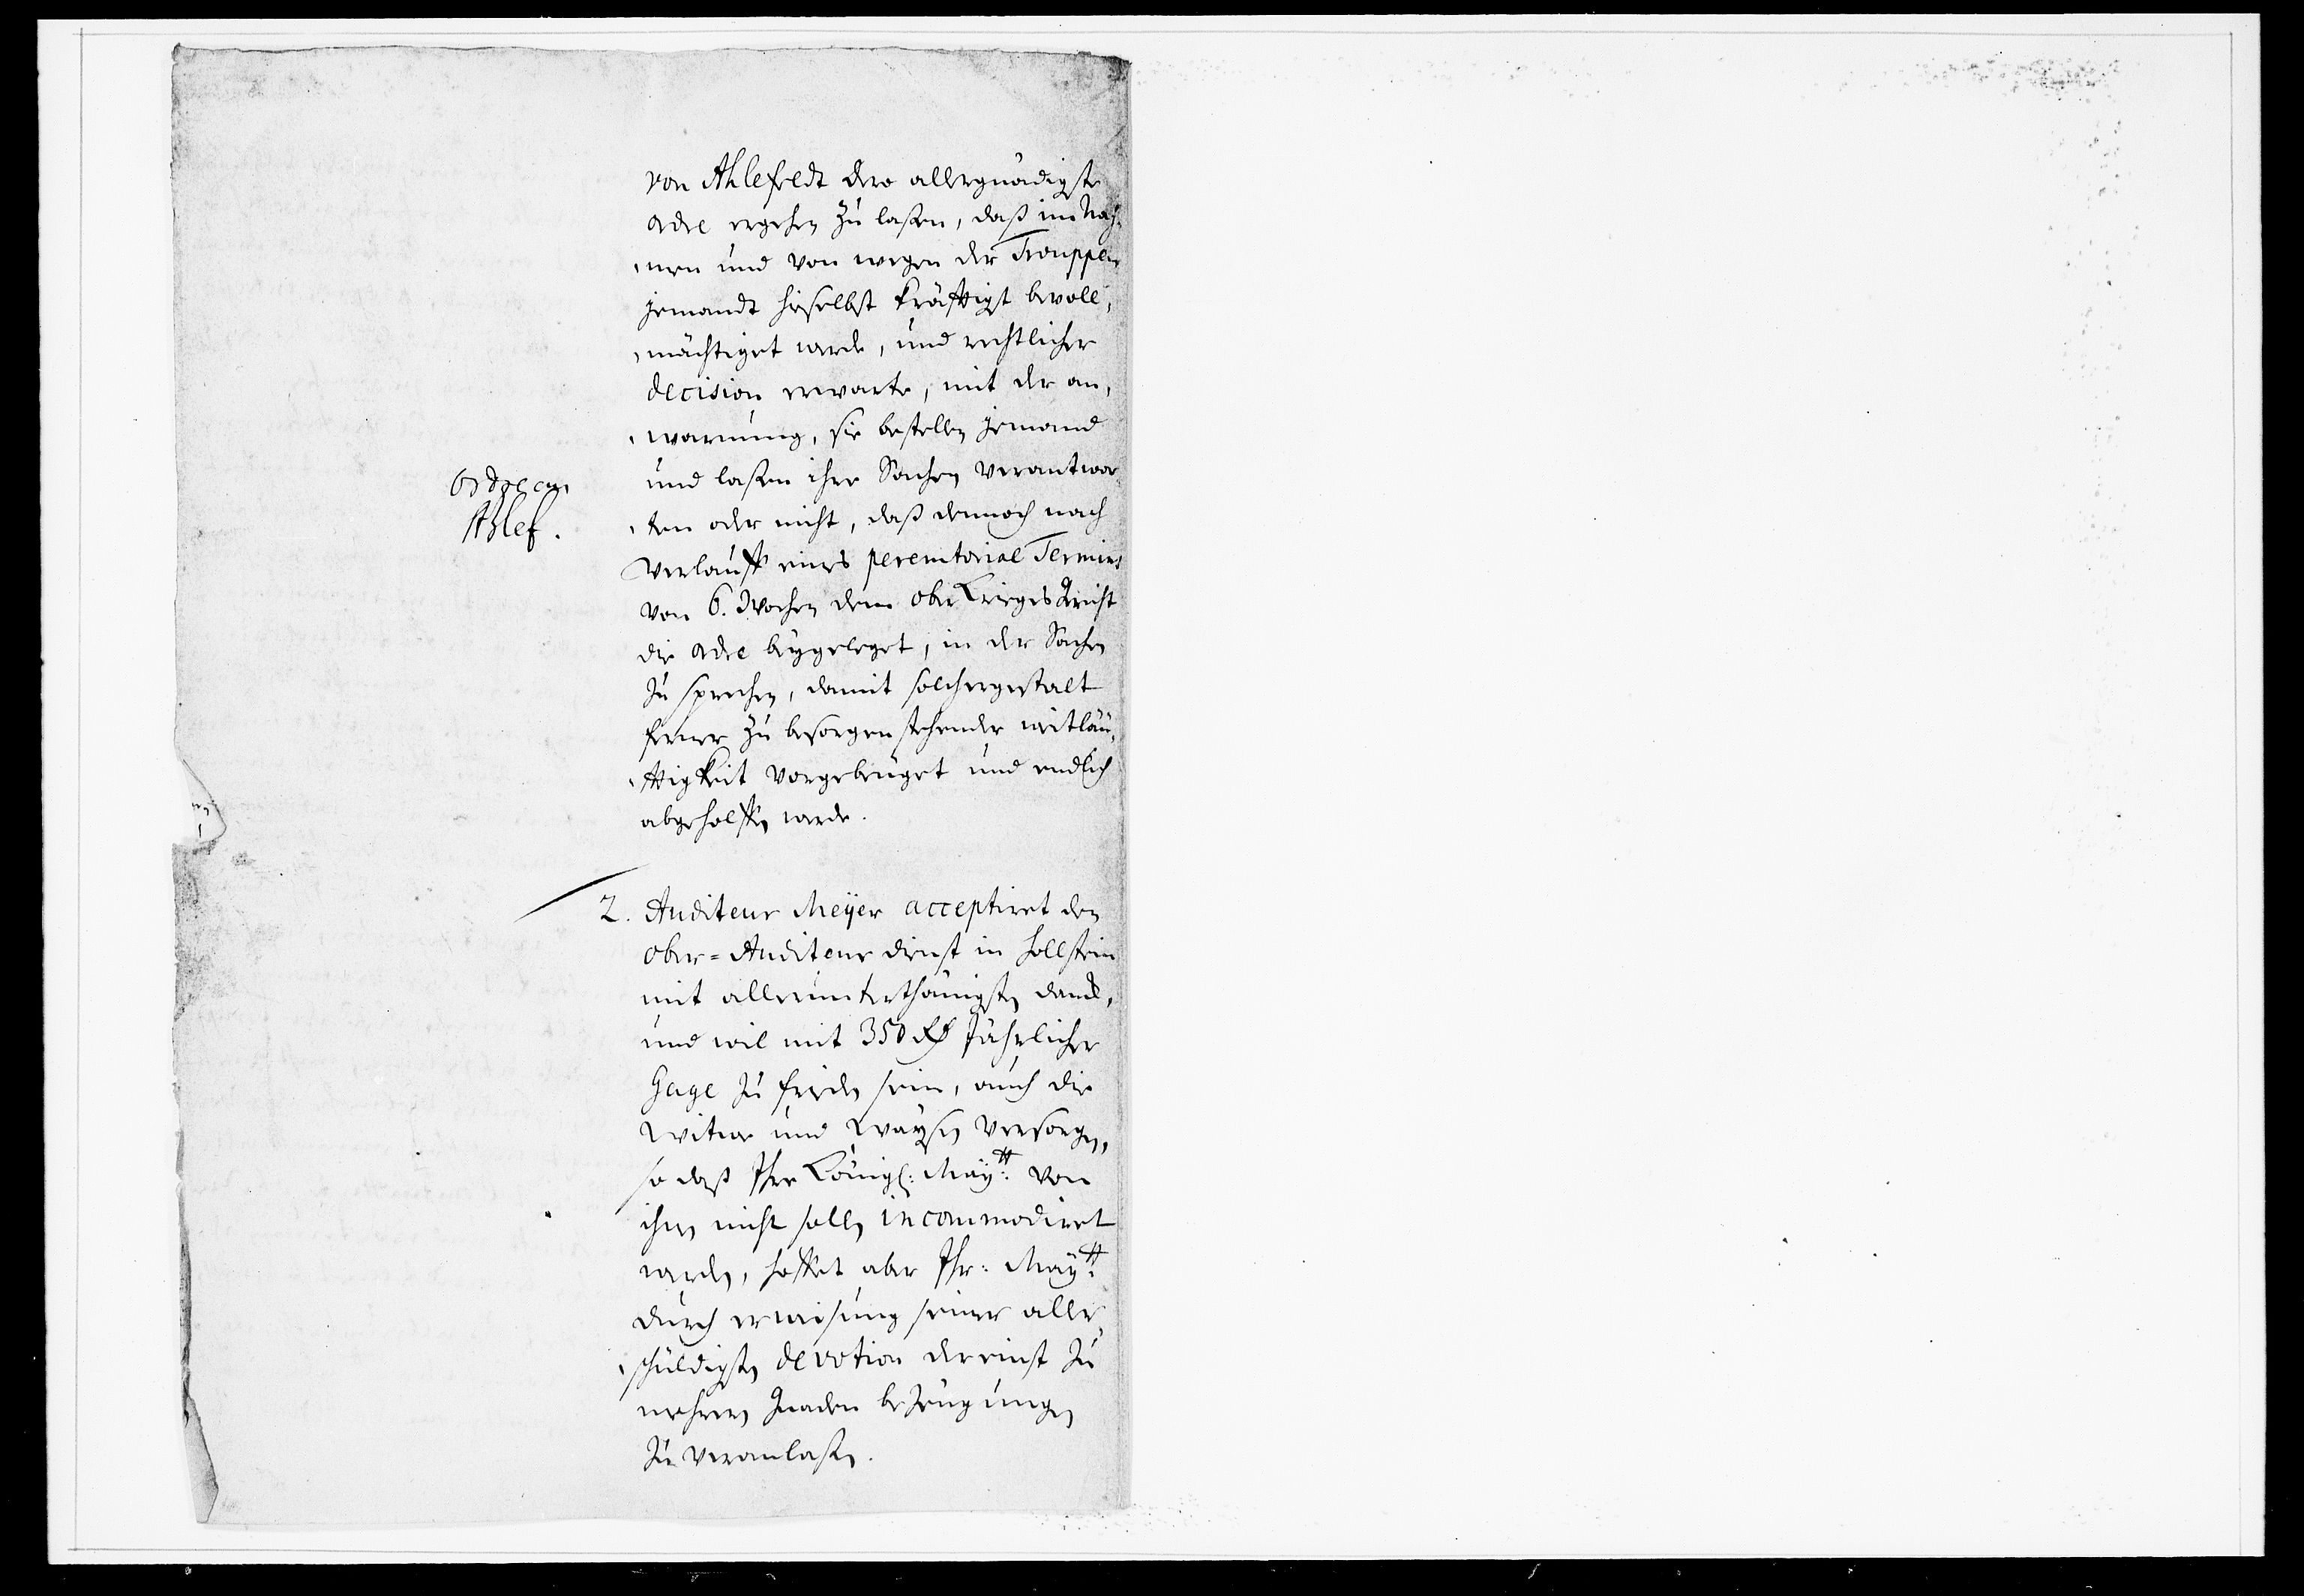 von Ahlefeldt dero allergnädigste
ordre ergehen zu laßen, daß im Nah-
men und von wegen der Trouppen
jemandt hieselbst kräfftigst bevoll,
mächtiget werde, und rechtlicher
decision erwarte, mit der an,
warnung, sie bestellen jemand
und laßen ihre Sachen verantwor
ten oder nicht, daß dennoch nach
Verlauff eines peremtorial Termins
von 6. Wochen dem ober Krieges Gericht
die ordre beygeleget, in der Sachen
zu sprechen, damit solchergestalt
ferner zu besorgen stehender weitläu,
fftigkeit vorgebeuget und endlich
abgeholffen werde.
Ordre an
Ahlef.
2. Auditeur Meÿer acceptiret den
ober=Auditeur dienst in Hollstein
mit allerunterthänigsten danck,
und wil mit 350 Rd Jährlicher
Gage zu frieden sein, auch die
Witwe und Waysen versorgen,
so daß Ihre Königl: Maÿtt: von
ihnen nicht sollen incommodiret
werden, hoffet aber Ihr: Maÿtt:
durch erweisung seiner aller
schuldigsten devotion dereinst zu
mehrern Gnaden bezeugungen
zu veranlaßen.